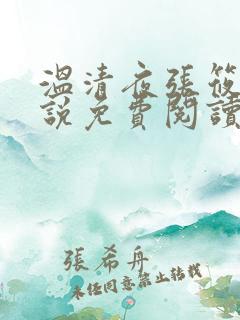 溫清夜張筱
說免費閱讀
張希舟
未经同意禁止转载